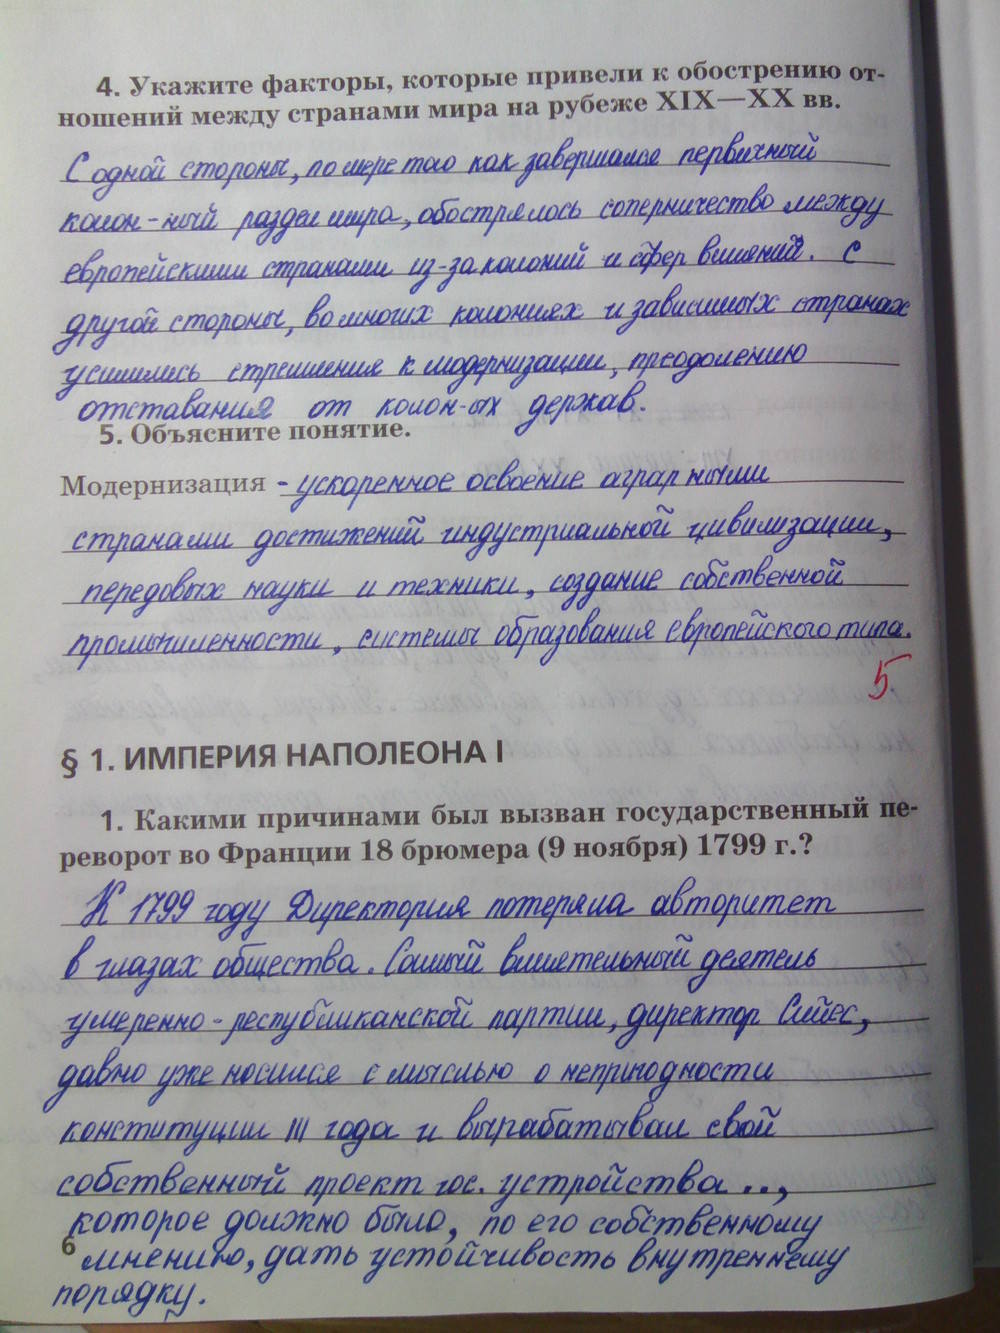 4. Укажите факторы, которые привели к обострению от-
ношений между странами мира на рубеже XIX—XX вв.
С одной стороны, по мере того как завершался первичный
колон-ный раздел мира, обострялось соперничество между
европейскими странами из-за колоний и сфер влияний. С
другой стороны, во многих колониях и зависимых странах
усилились стремления к модернизации, преодолению
отставания от колон-ых держав.
5. Объясните понятие.
Модернизация - ускоренное освоение аграрными
странами достижений индустриальной цивилизации,
передовых науки и техники, создание собственной
промышленности, системы образования европейского типа.
5
§ 1. ИМПЕРИЯ НАПОЛЕОНА I
1. Какими причинами был вызван государственный пе-
реворот во Франции 18 брюмера (9 ноября) 1799 г.?
К 1799 году Директория потеряла авторитет
в глазах общества. Самый влиятельный деятель
умеренно-республиканской партии, директор Сийес,
давно уже носился с мыслью о непригодности
конституции III года и вырабатывал свой
собственный проект гос. устройства ..,
которое должно было, по его собственному
6 мнению, дать устойчивость внутреннему
порядку.